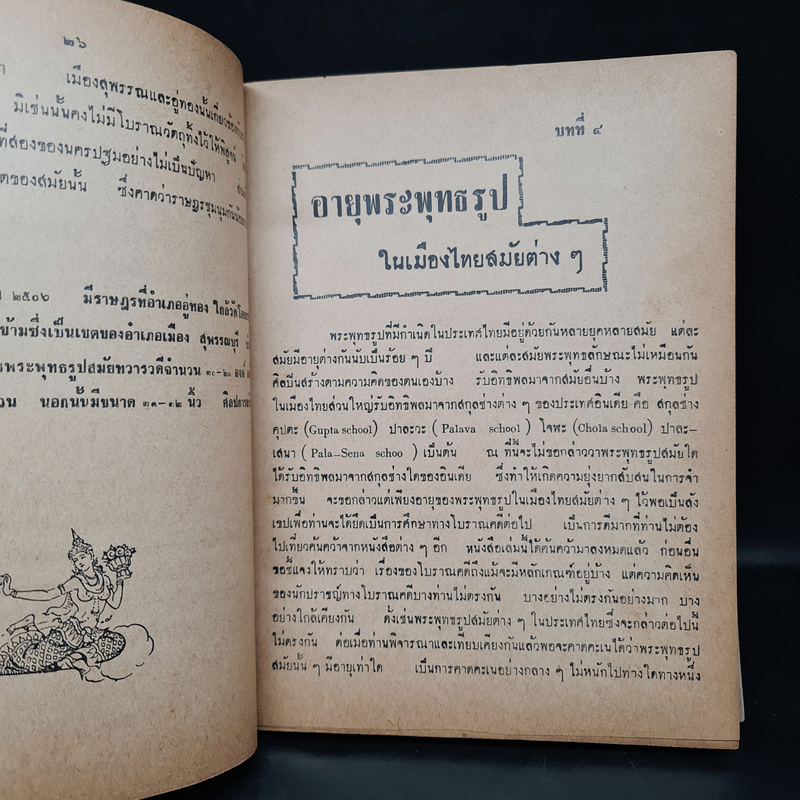 ๒๖
เมืองสุพรรณและอู่ทองนั้นเกี่ยวข้อง
มิเช่นนั้นคงไม่มีโบราณวัตถุทิ้งไว้ให้พิสูจน์
ที่สองของนครปฐมอย่างไม่เป็นปัญหา
ตของสมัยนั้น ซึ่งคาดว่าราษฎรชุมนุมกัน
๒๕๐๖ มีราษฎรที่อำเภออู่ทอง ใกล้วัด
ข้ามซึ่งเป็นเขตของอำเภอเมือง สุพรรณบุรี
พระพุทธรูปสมัยทวารวดีจำนวน ๑๐-๒๐ องค์
วน นอกนั้นมีขนาด ๑๑-๑๒ นิ้ว
บทที่ ๔
อายุพระพุทธรูป
ในเมืองไทยสมัยต่าง ๆ
พระพุทธรูปที่มีกำเนิดในประเทศไทยมีอยู่ด้วยกันหลายยุคหลายสมัย แต่ละ
สมัยมีอายุต่างกันนับเป็นร้อย ๆ ปี และแต่ละสมัยพระพุทธลักษณะไม่เหมือนกัน
ศิลปินสร้างตามความคิดของตนเองบ้าง รับอิทธิพลมาจากสมัยอื่นบ้าง พระพุทธรูป
ในเมืองไทยส่วนใหญ่รับอิทธิพลมาจากสกุลช่างต่าง ๆ ของประเทศอินเดีย คือ สกุลช่าง
คุปตะ (Gupta school) ปาละวะ ( Palava school ) โจฬะ (Chola school) ปาละ—
เสนา ( Pala—Sena schoo ) เป็นต้น ณ ที่นี้จะไม่ขอกล่าวว่าพระพุทธรูปสมัยใด
ได้รับอิทธิพลมาจากสกุลช่างใดของอินเดีย ซึ่งทำให้เกิดความยุ่งยากสับสนในการจำ
มากขึ้น จะขอกล่าวแต่เพียงอายุของพระพุทธรูปในเมืองไทยสมัยต่าง ๆ ไว้พอเป็นสัง
เขปเพื่อท่านจะได้ยึดเป็นการศึกษาทางโบราณคดีต่อไป เป็นการดีมากที่ท่านไม่ต้อง
ไปเที่ยวค้นคว้าจากหนังสือต่าง ๆ อีก หนังสือเล่มนี้ได้ค้นคว้ามาลงหมดแล้ว ก่อนอื่น
ขอชี้แจงให้ทราบว่า เรื่องของโบราณคดีถึงแม้จะมีหลักเกณฑ์อยู่บ้าง แต่ความคิดเห็น
ของนักปราชญ์ทางโบราณคดีบางท่านไม่ตรงกัน บางอย่างไม่ตรงกันอย่างมาก บาง
อย่างใกล้เคียงกัน ดั่งเช่นพระพุทธรูปสมัยต่าง ๆ ในประเทศไทยซึ่งจะกล่าวต่อไปนี้
ไม่ตรงกัน ต่อเมื่อท่านพิจารณาและเทียบเคียงกันแล้วพอจะคาดคะเนได้ว่าพระพุทธรูป
สมัยนั้น ๆ มีอายุเท่าใด เป็นการคาดคะเนอย่างกลาง ๆ ไม่หนักไปทางใดทางหนึ่ง